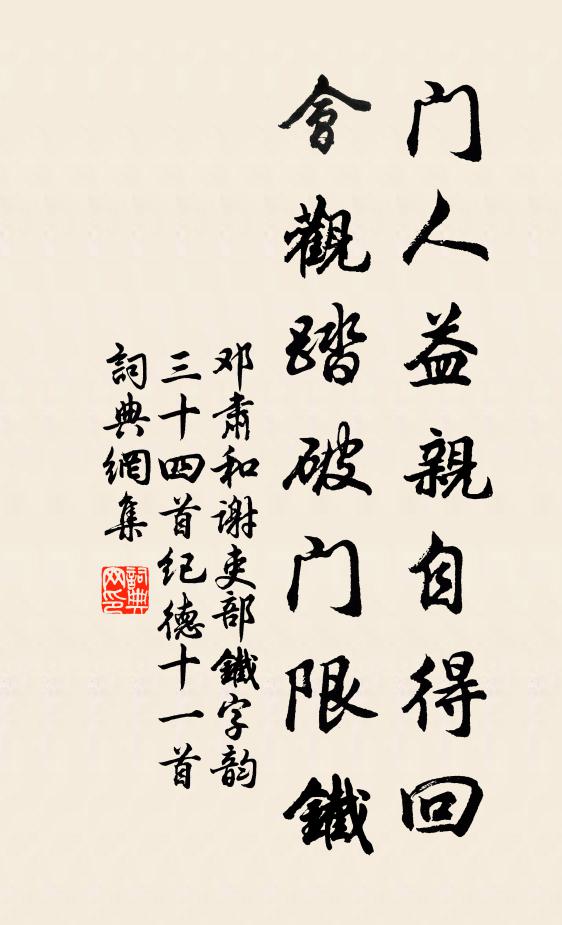 门人益親自得回
會觀踏破门限鐵
邓肅和谢吏部鐵字韵
三十四首纪德十一首
詞典網集
詞典
网印